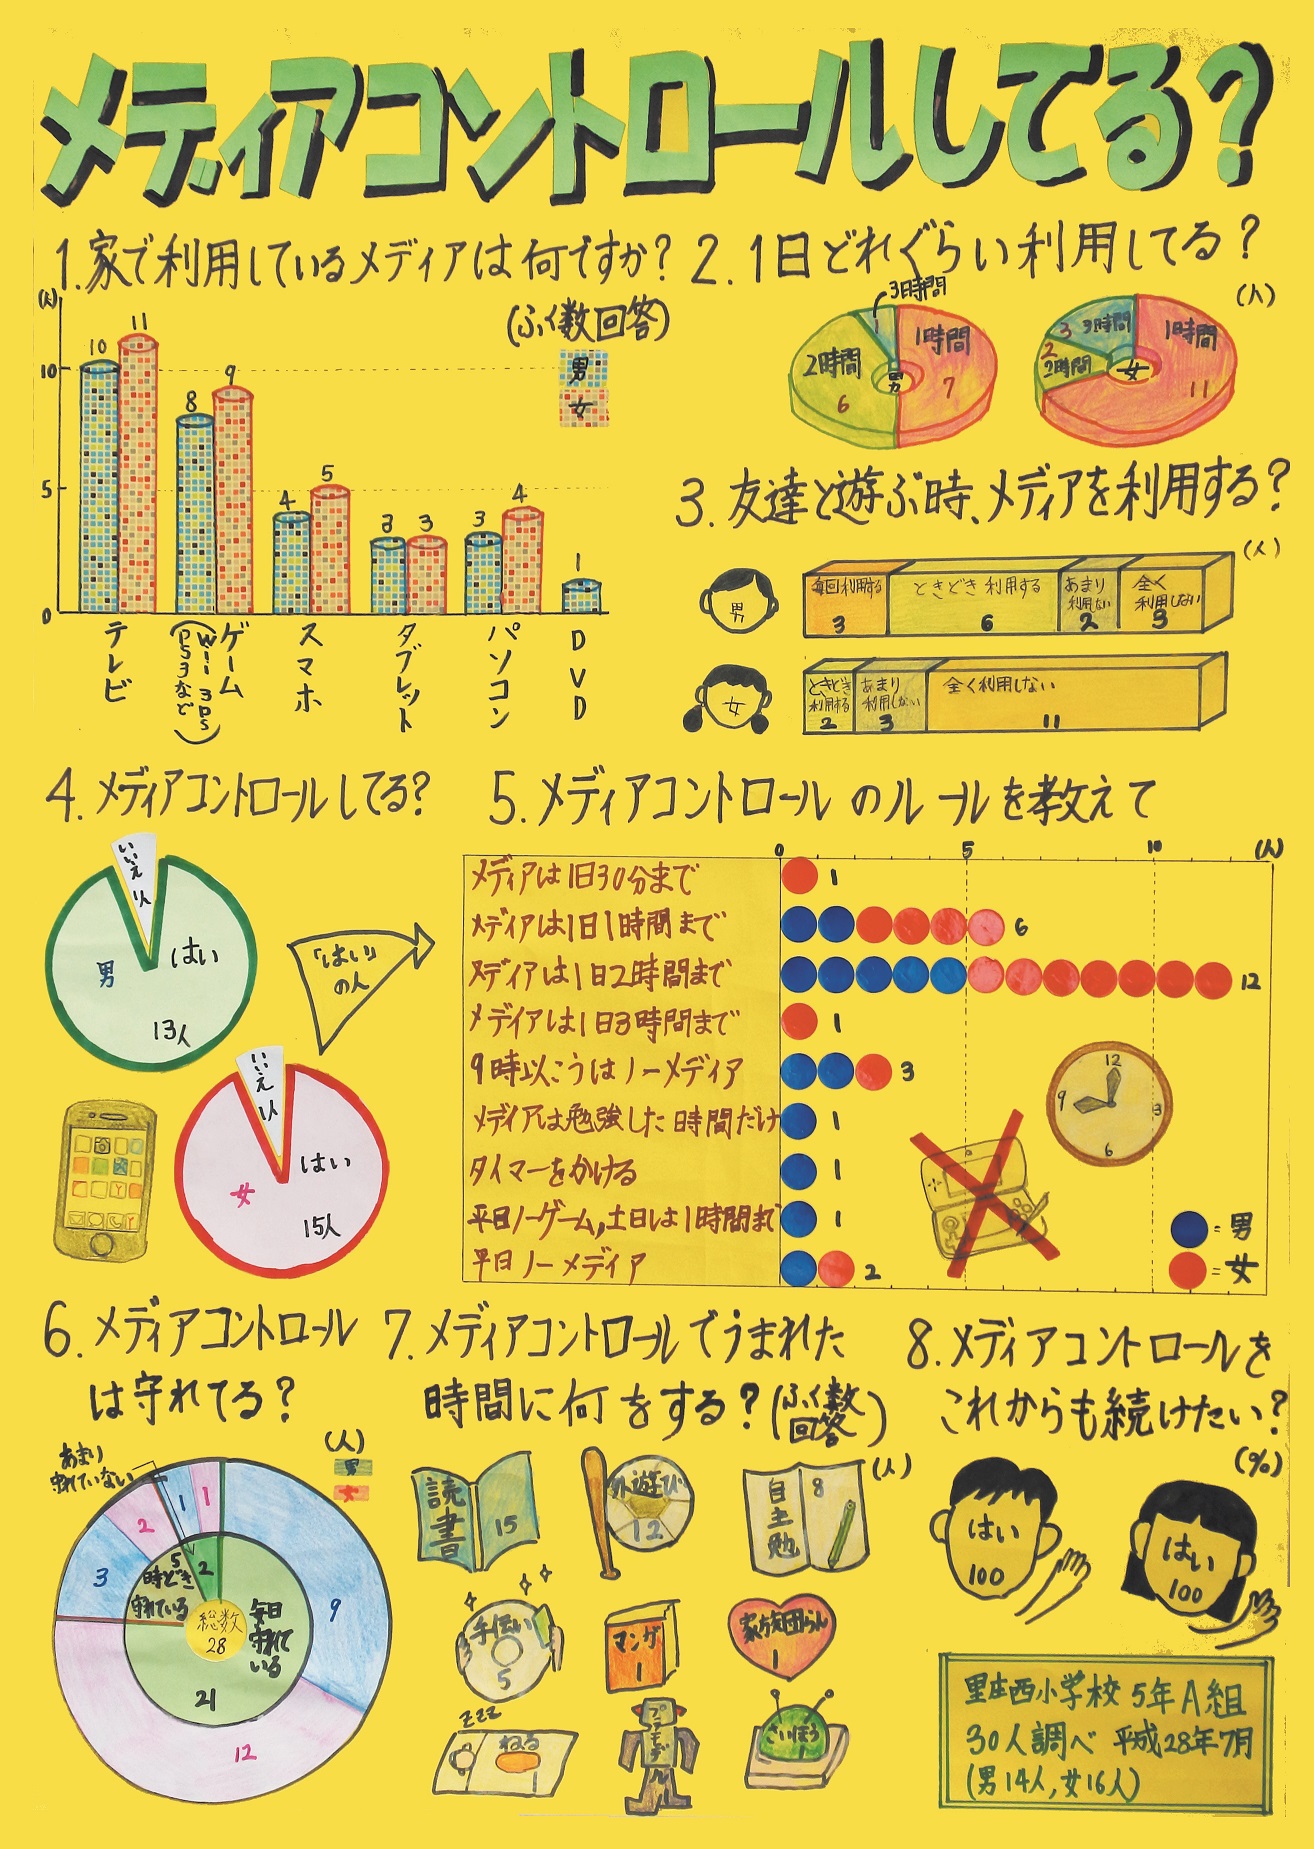 メディアコントロールしてる?
1.家で利用しているメディアは何ですか?
(ふく数回答)
(人)
男
女
10
5
0
10
11
8
9
4
5
3
3
3
4
1
テレビ
ゲーム
(Wii 3DS
PS3など)
スマホ
タブレット
パソコン
DVD
2.1日どれぐらい利用してる?
(人)
3時間
1
2時間
6
1時間
7
男
3
3時間
2
2時間
1時間
11
女
3.友達と遊ぶ時、メディアを利用する?
(人)
男
毎回利用する
3
ときどき利用する
6
あまり
利用しない
2
全く
利用しない
3
女
ときどき
利用する
2
あまり
利用しない
3
全く利用しない
11
4.メディアコントロールしてる?
いいえ 1人
はい
男
13人
いいえ 1人
はい
女
15人
「はい」
の人
5.メディアコントロールのルールを教えて
0
5
10
(人)
メディアは1日30分まで
1
メディアは1日1時間まで
6
メディアは1日2時間まで
12
メディアは1日3時間まで
1
9時以こうはノーメディア
3
メディアは勉強した時間だけ
1
タイマーをかける
1
平日ノーゲーム,土日は1時間まで
1
平日ノーメディア
2
12
3
6
9
=男
=女
6.メディアコントロール
は守れてる?
(人)
男
女
あまり
守れていない
1
1
2
3
9
12
5
時どき
守れている
2
総数
28
毎日
守れて
いる
21
7.メディアコントロールでうまれた
時間に何をする?(ふく数
回答)
(人)
読書
15
外遊び
12
自主勉
8
手伝い
5
マンガ
1
家族団らん
1
zzz
ねる
1
プラモデル
さいほう
8.メディアコントロールを
これからも続けたい?
(%)
はい
100
はい
100
里庄西小学校 5年A組
30人調べ 平成28年7月
(男14人,女16人)